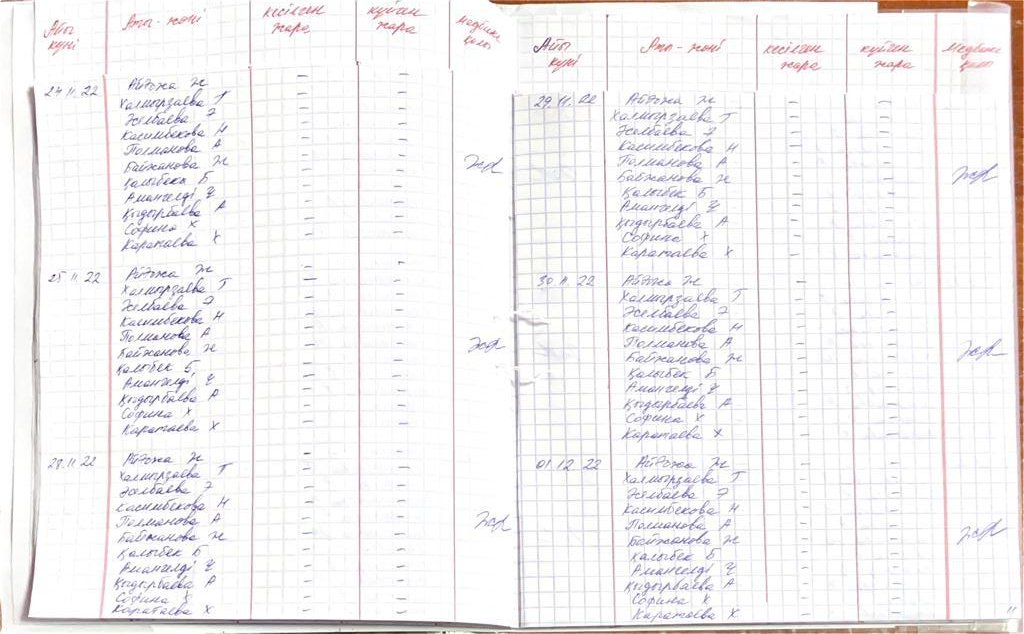 Айы күні Аты-жөні кесілген жара күйген жара медбике қолы
24.11.22 Айдожа Ж – –
Халмырзаева Т – –
Желбаева Э – –
Касимбекова Н – –
Полманова А – –
Байжанова Ж – –
Қалыбек Б – –
Амангелді Ұ – –
Қыдырбаева А – –
Софина Х – –
Каратаева Х – –
25.11.22 Айдожа Ж – –
Халмырзаева Т – –
Желбаева Э – –
Касимбекова Н – –
Полманова А – –
Байжанова Ж – –
Қалыбек Б – –
Амангелді Ұ – –
Қыдырбаева А – –
Софина Х – –
Каратаева Х – –
28.11.22 Айдожа Ж – –
Халмырзаева Т – –
Желбаева Э – –
Касимбекова Н – –
Полманова А – –
Байжанова Ж – –
Қалыбек Б – –
Амангелді Ұ – –
Қыдырбаева А – –
Софина Х – –
Каратаева Х – –
Айы күні Аты-жөні кесілген жара күйген жара Медбике қолы
29.11.22 Айдожа Ж – –
Халмырзаева Т – –
Желбаева Э – –
Касимбекова Н – –
Полманова А – –
Байжанова Ж – –
Қалыбек Б – –
Амангелді Ұ – –
Қыдырбаева А – –
Софина Х – –
Каратаева Х – –
30.11.22 Айдожа Ж – –
Халмырзаева Т – –
Желбаева Э – –
Касимбекова Н – –
Полманова А – –
Байжанова Ж – –
Қалыбек Б – –
Амангелді Ұ – –
Қыдырбаева А – –
Софина Х – –
Каратаева Х – –
01.12.22 Айдожа Ж – –
Халмырзаева Т – –
Желбаева Э – –
Касимбекова Н – –
Полманова А – –
Байжанова Ж – –
Қалыбек Б – –
Амангелді Ұ – –
Қыдырбаева А – –
Софина Х – –
Каратаева Х – –
11